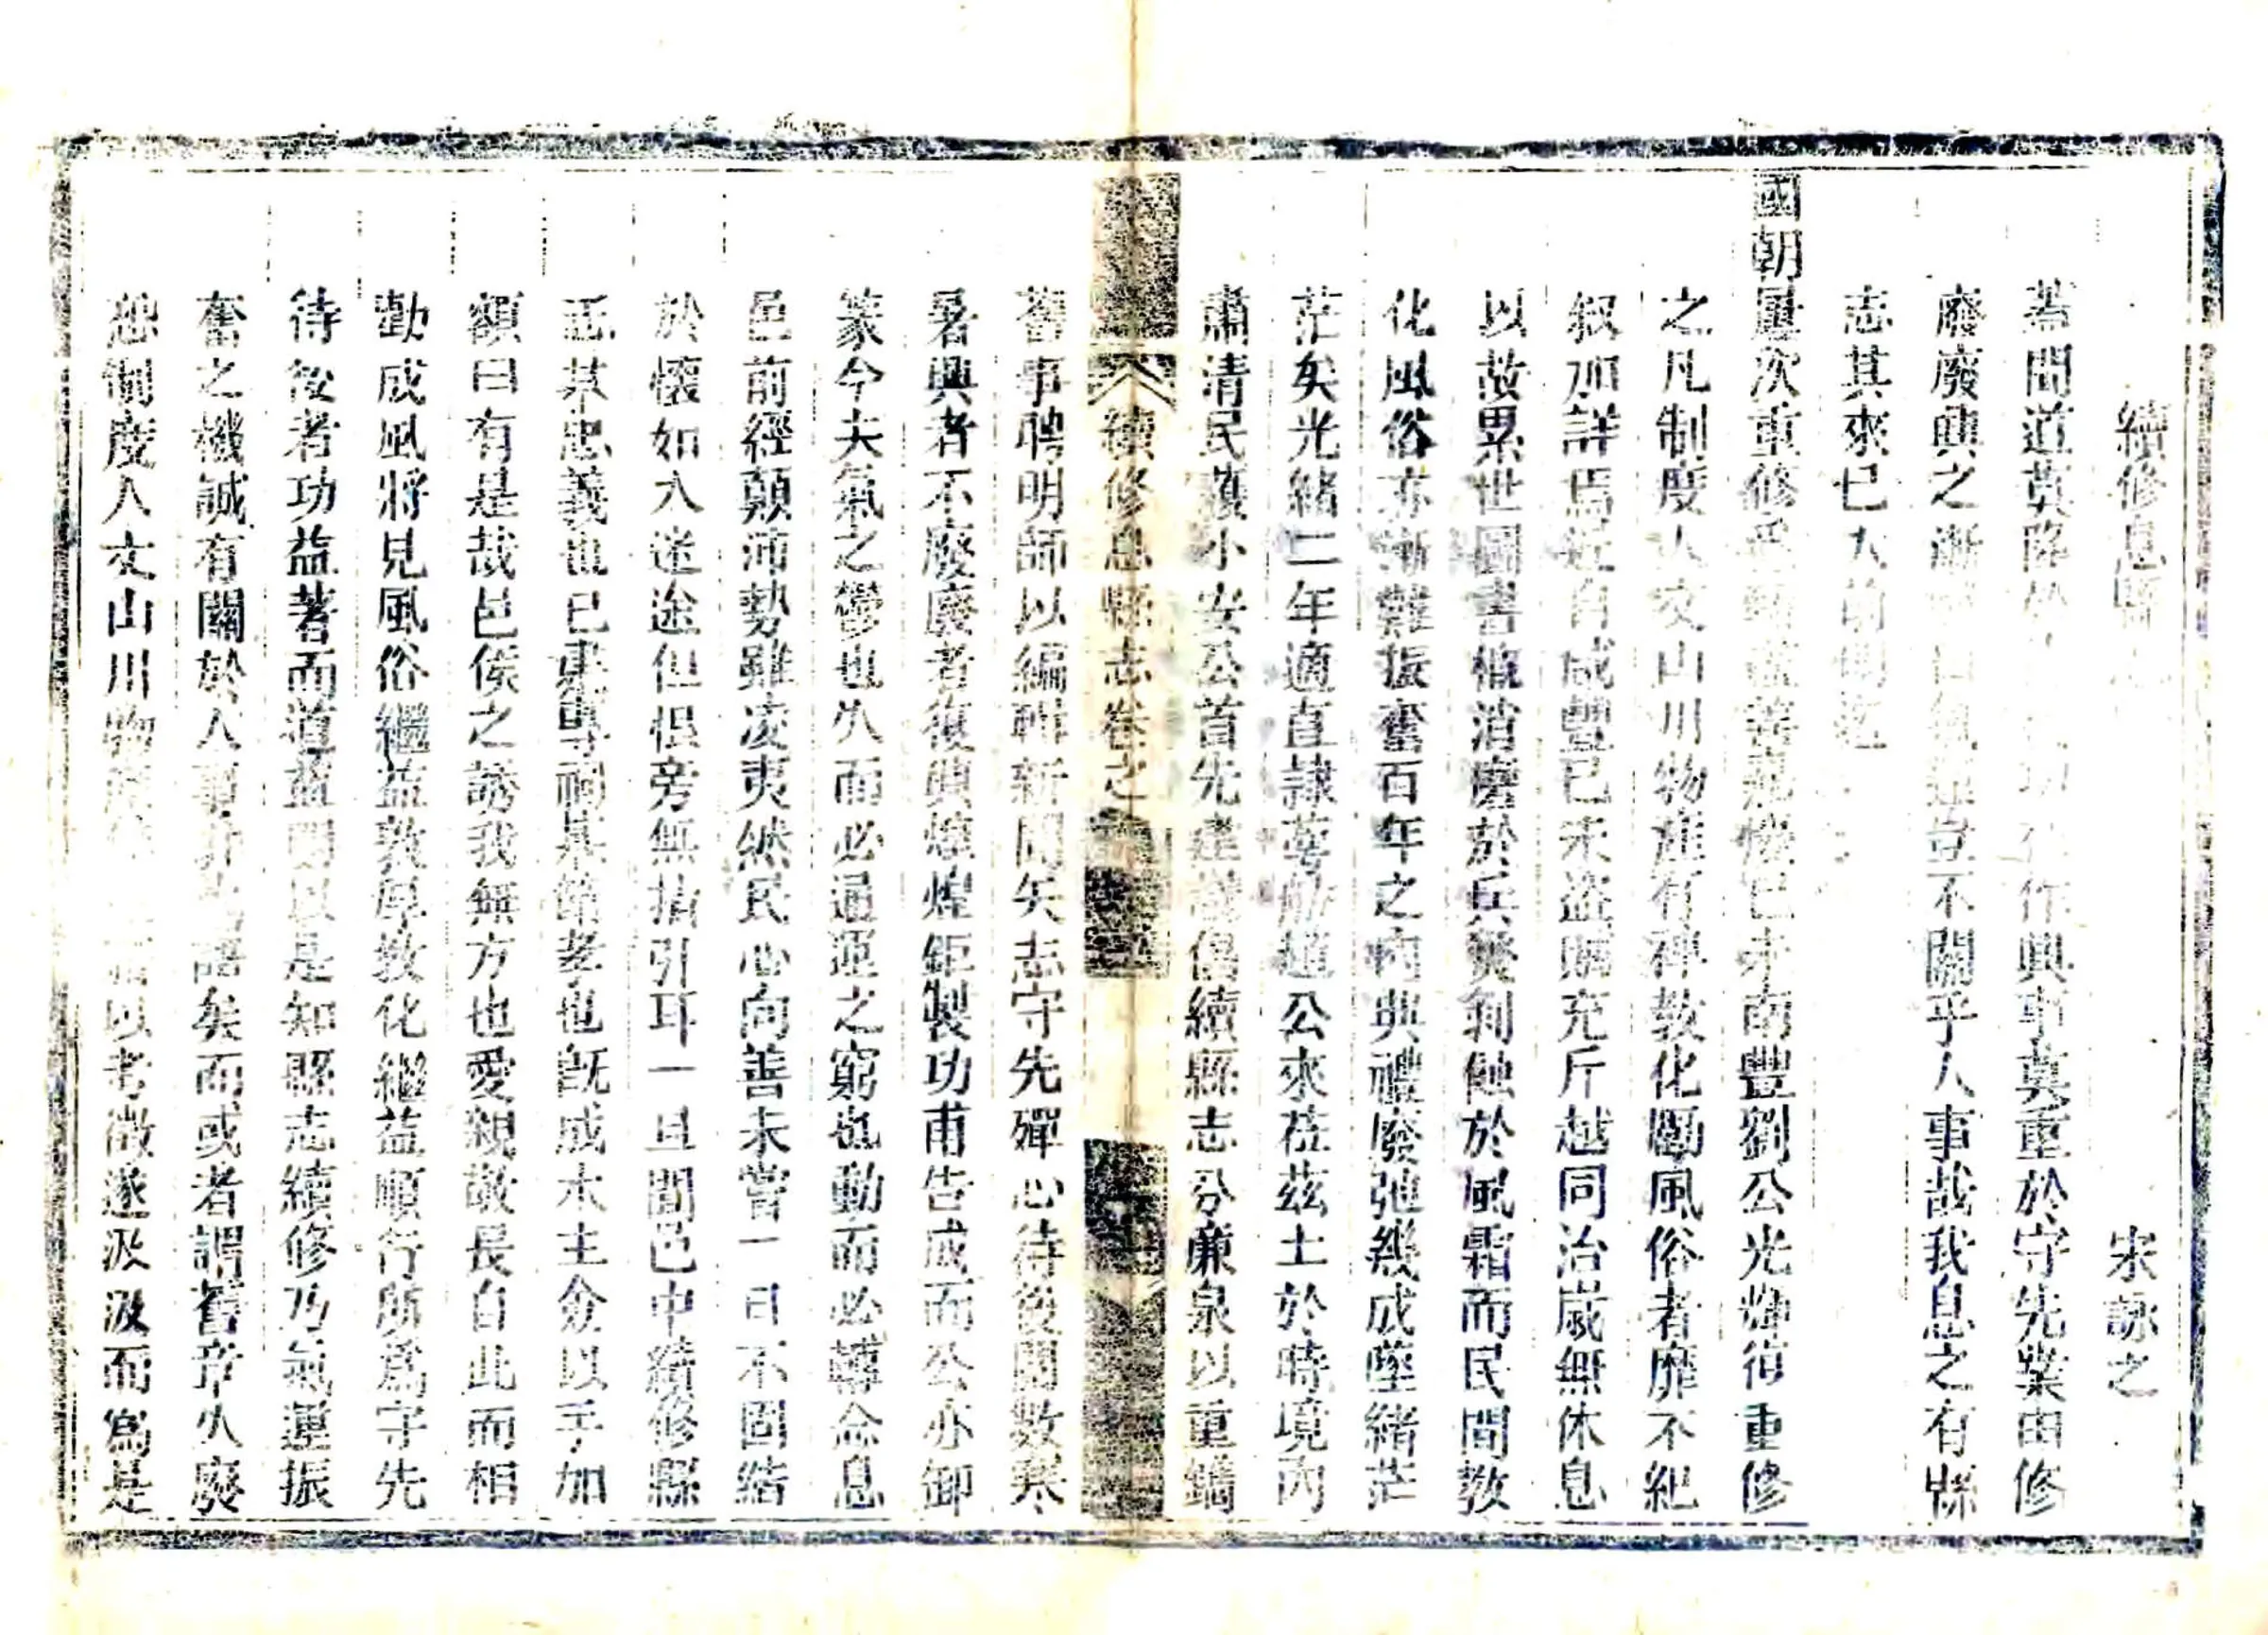 續修息縣
宋詠之
蓋聞道莫隆於 功 作興事莫重於守先業由修
廢廢興之漸 氣運豈不關乎人事哉我息之有縣
志其來已久前明
國朝屢次重修 嘉慶己未南豐劉公光輝復重修
之凡制度人文山川物產有裨教化勵風俗者靡不紀
叙加詳焉近自咸豐己未盜賊充斥越同治歲無休息
以故累世圖書櫝消磨於兵燹剝蝕於風霜而民間教
化風俗亦漸難振奮百年之內典禮廢弛幾成墜緒茫
茫矣光緒二年適直隸 趙公來莅茲土於時境內
肅清民獲小安公首先建議倡續縣志分廉泉以重鐫
續修息縣志卷之
舊事聘明師以編輯新聞矢志守先殫心待後閱數寒
暑興者不廢廢者復興煌煌鉅製功甫告成而公亦卸
篆今夫氣之鬱也久而必通運之窮也動而必轉念息
邑前經顛沛勢雖凌夷然民心向善未嘗一日不固結
於懷如入迷途但恨旁無指引耳一旦聞邑中續修縣
志某忠義也已建專祠某節孝也既成木主僉以手加
額曰有是哉邑侯之誘我無方也愛親敬長自此而相
勸成風將見風俗繼益敦厚教化繼益順行所爲守先
待後者功益著而道益 以是知縣志續修乃氣運振
奮之機誠有關於人事非 語矣而或者謂舊章久廢
恐制度人文山川物產 以考徵遂汲汲而爲是